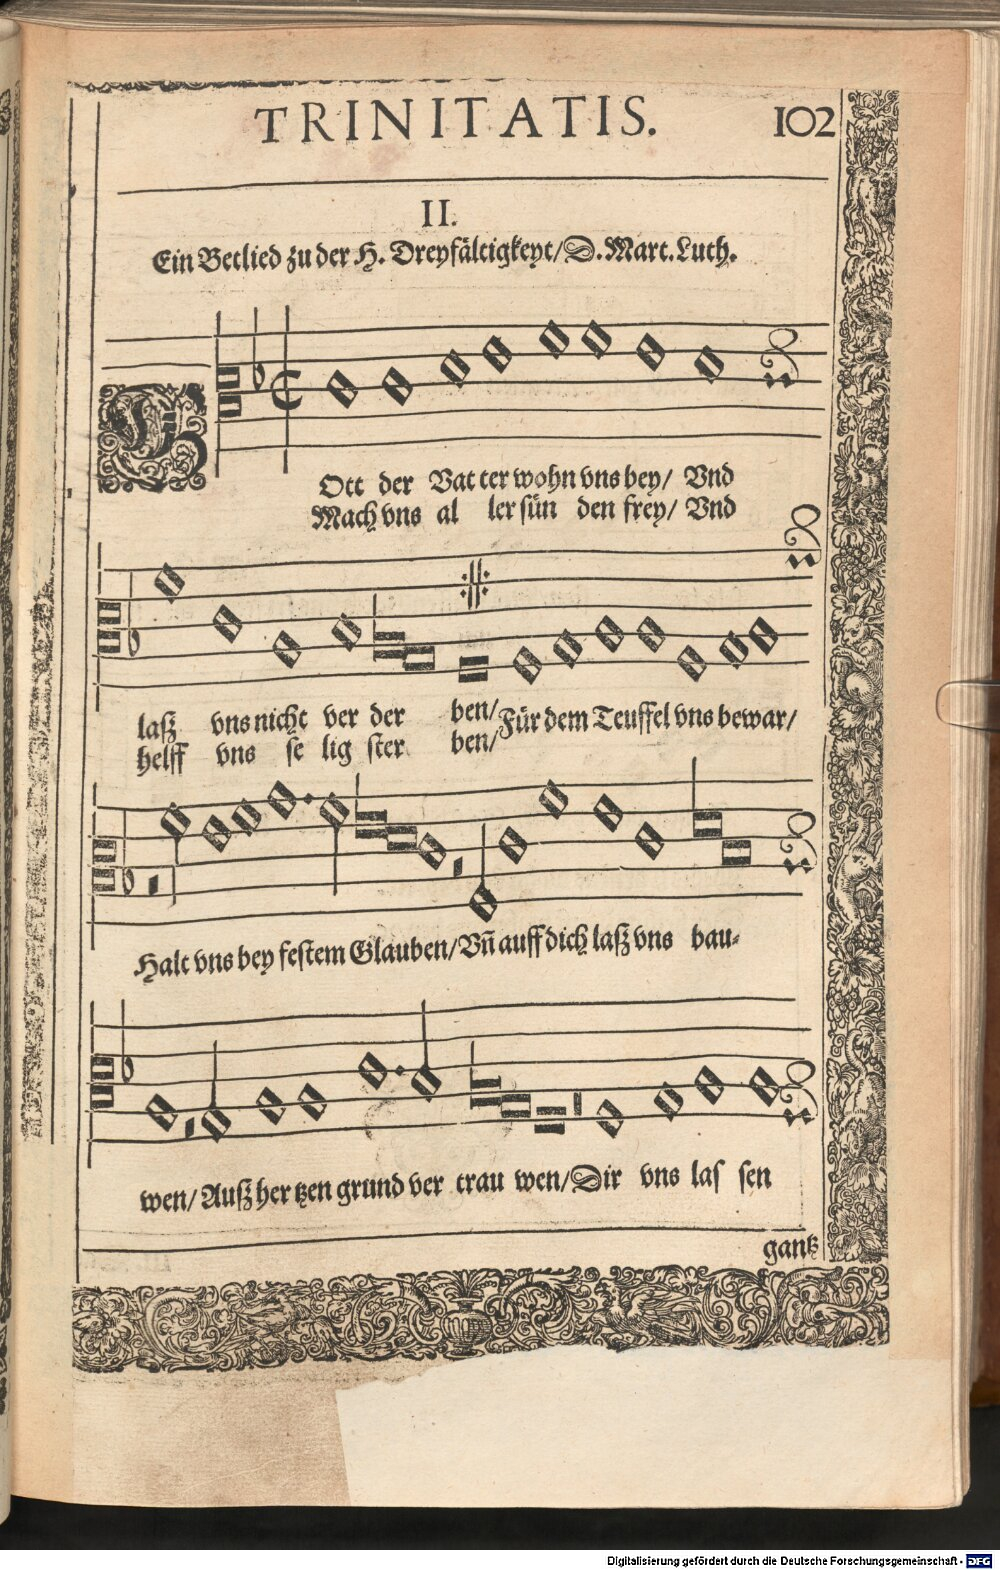 TRINITATIS. 102
II.
Ein Betlied zu der H. Dreyfältigkeyt/ D. Mart. Luth.
GOtt der Vat ter wohn vns bey/ Vnd
Mach vns al ler sün den frey/ Vnd
laß vns nicht ver der ben/ Für dem Teuffel vns bewar/
helff vns se lig ster ben/
Halt vns bey festem Glauben/ Vn̄ auff dich laß vns bau-
wen/ Auß her tzen grund ver trau wen/ Dir vns las sen
gantz
Digitalisierung gefördert durch die Deutsche Forschungsgemeinschaft - DFG